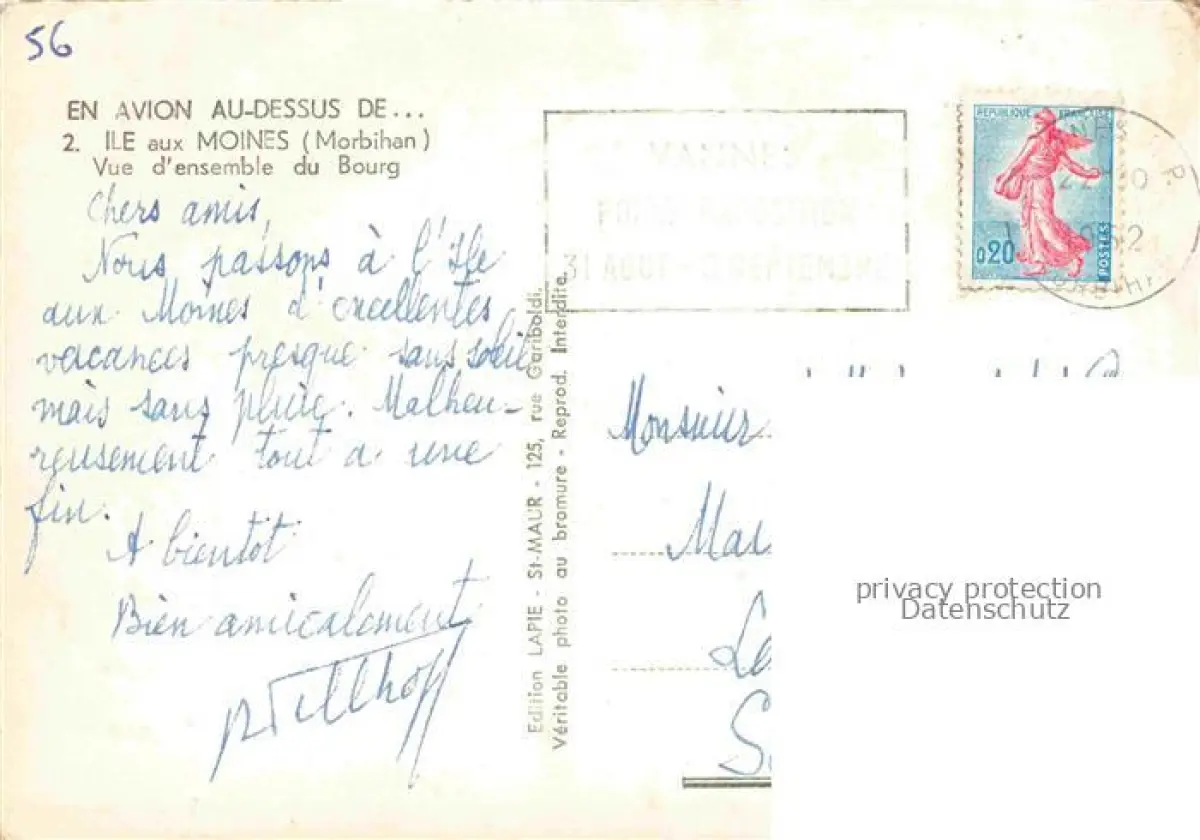 56
EN AVION AU-DESSUS DE...
2. ILE aux MOINES (Morbihan)
Vue d'ensemble du Bourg
Chers amis,
Nous passons à l'Ile
aux Moines d'excellentes
vacances presque sans soleil
mais sans pluie. Malheu-
reusement tout a une
fin.
A bientôt
Bien amicalement
Edition LAPIE - St-MAUR - 125, rue Gariboldi.
Véritable photo au bromure - Reprod. Interdite.
VANNES
31 AOUT - SEPTEMBRE
REPUBLIQUE FRANÇAISE
0,20
POSTES
Monsieur
privacy protection
Datenschutz